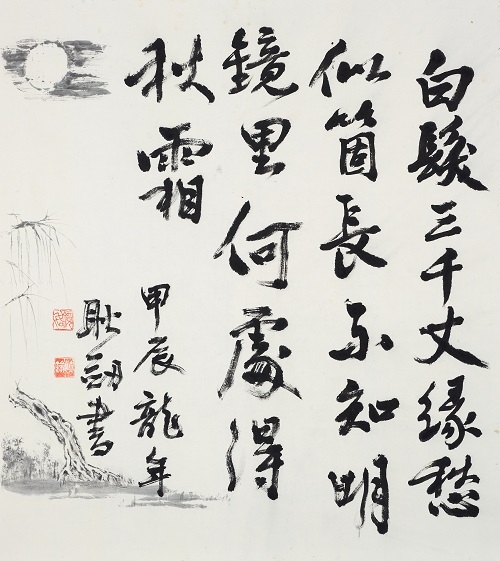 白髮三千丈緣愁
似箇長不知明
鏡里何處得
秋霜
甲辰龍年
耿書